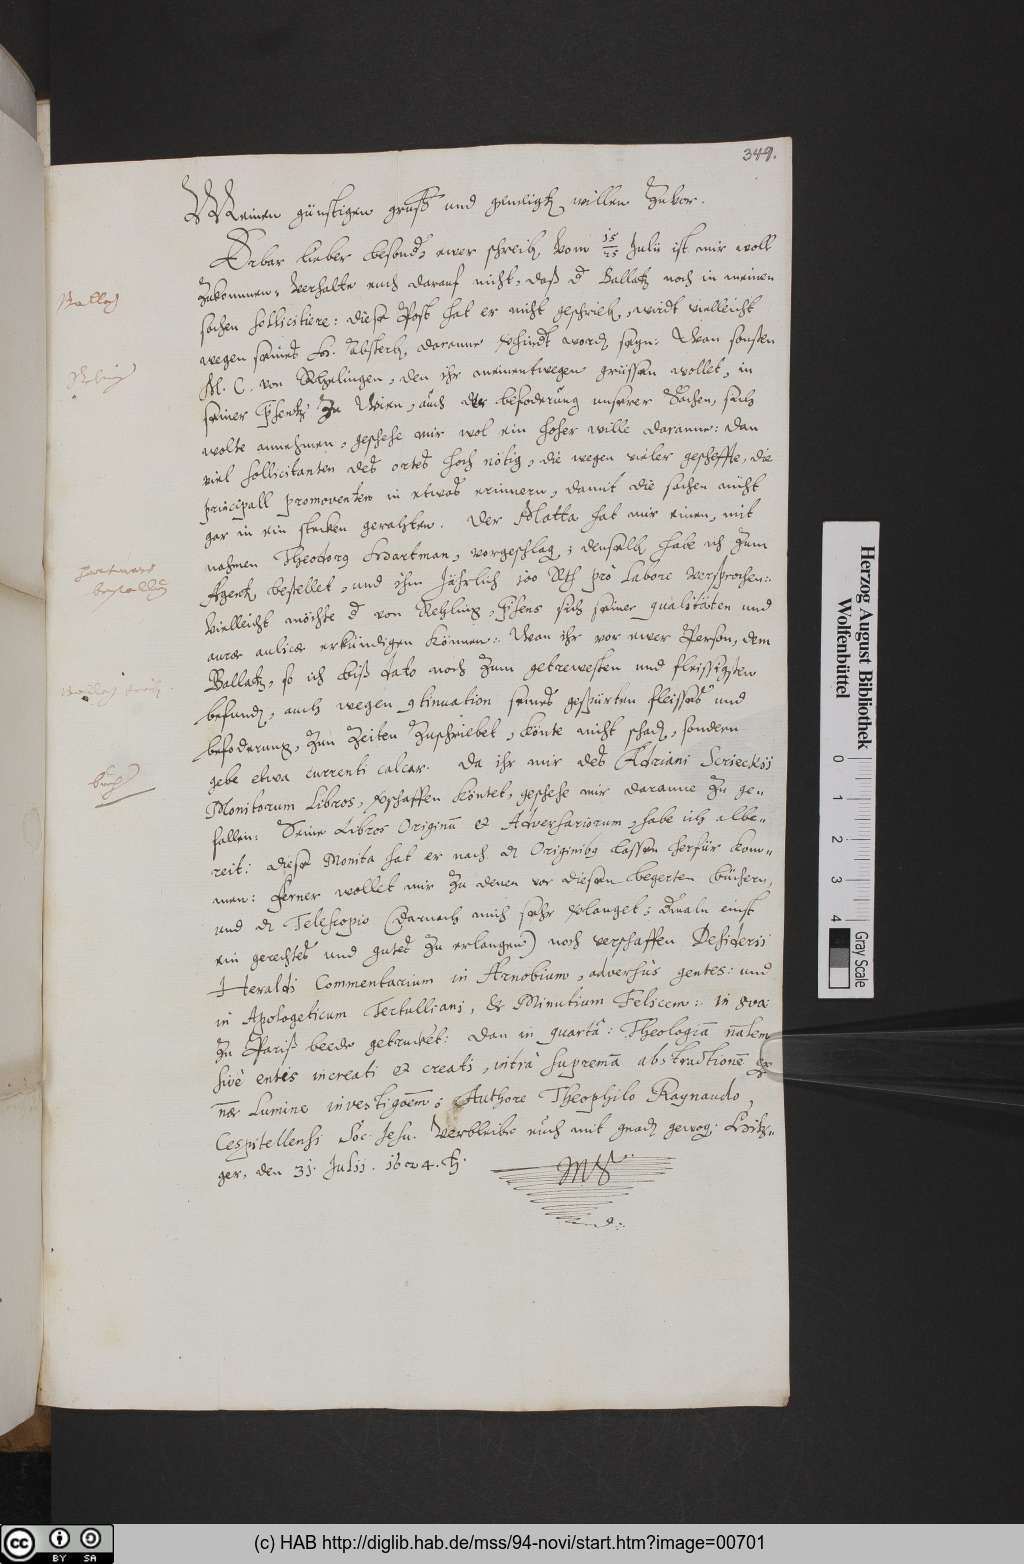 349.
Meinen günstigen gruß und geneigten willen zuvor.
Erbar lieber besonder, ewer schreiben vom 15/25 Julii ist mir woll
zukommen, verhalte euch darauf nicht, daß d Ballatz noch in meinen
sachen sollicitiere: diese Post hat er nicht geschrieben, wirdt vielleicht
wegen seines absterben, daranne worden seyn: Wan sonsten
M. C. von Rehelingen, den ihr meinentwegen grüssen wollet, in
seiner zu Wien, auch der befoderung unserer Sachen, sich
wolte annehmen, geschehe mir wol ein hoher wille daranne: dan
viel sollicitanten des ortes hoch nötig, die wegen vieler gescheffte, die
principall promoventen in etwas erinnern, damit die sachen nicht
gar in ein stecken gerahten. Der Matta hat mir einen, mit
nahmen Theodorg Hartman, vorgeschlagen; denselben habe ich zum
Agenten bestellet, und ihm Jährlich 100 Rth pro labore versprochen:
Vielleicht möchte d von Rehling, sich seiner qualitäten und
auræ aulicæ erkündigen können: Wan ihr vor ewer Person, dem
Ballatz, so ich biß dato noch zum getrewesten und fleissigsten
befunden, auch wegen 9tinuation seines gespürten fleisses und
befoderung, zun zeiten zuschriebet, könte nicht schaden, sondern
gebe etwa currenti calcar. Da ihr mir des Adriani Scrieckii
Monitorum Libros, schaffen köntet, geschehe mir daranne zu ge-
fallen: Seine Libros Originū et Adversariorum, habe ich albe-
reit: diese Monita hat er nach d Originibg lassen herfür kom-
men: Ferner wollet mir zu denen vor diesem begerten büchern,
und d Telescopio (darnach mich sehr verlanget; einst
ein gerechtes und gutes zu erlangen) noch verschaffen Desiderii
Heraldi Commentarium in Arnobium, adversùs gentes: und
in Apologeticum Tertulliani, & Minutium Felicem: in 8va
zu Pariß beede getrucket: Dan in quartâ: Theologiā nālem
sivè entis increati et creati, intrà supremā abstractionē ex
nāe Lumine investigāoem; Authore Theophilo Raynaudo,
Cespitellensi Soc: Jesu. Verbleibe euch mit gnaden gewogen. Hitz-
ger, den 31. Julii. 1624.
Ballatz
Rehling
Hartmans
bestallung
Bücher
Herzog August Bibliothek
Wolfenbüttel
0 1 2 3 4
Gray Scale
cc BY SA
(c) HAB http://diglib.hab.de/mss/94-novi/start.htm?image=00701